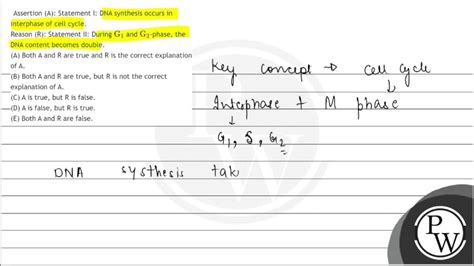 Assertion (A): Statement I: DNA synthesis occurs in
interphase of cell cycle.
Reason (R): Statement II: During G₁ and G₂-phase, the
DNA content becomes double.
(A) Both A and R are true and R is the correct explanation
of A.
(B) Both A and R are true, but R is not the correct
explanation of A.
(C) A is true, but R is false.
(D) A is false, but R is true.
(E) Both A and R are false.
Key concept → cell cycle
↓
Interphase + M phase
↓
G₁, S, G₂
DNA systhesis tak
PW